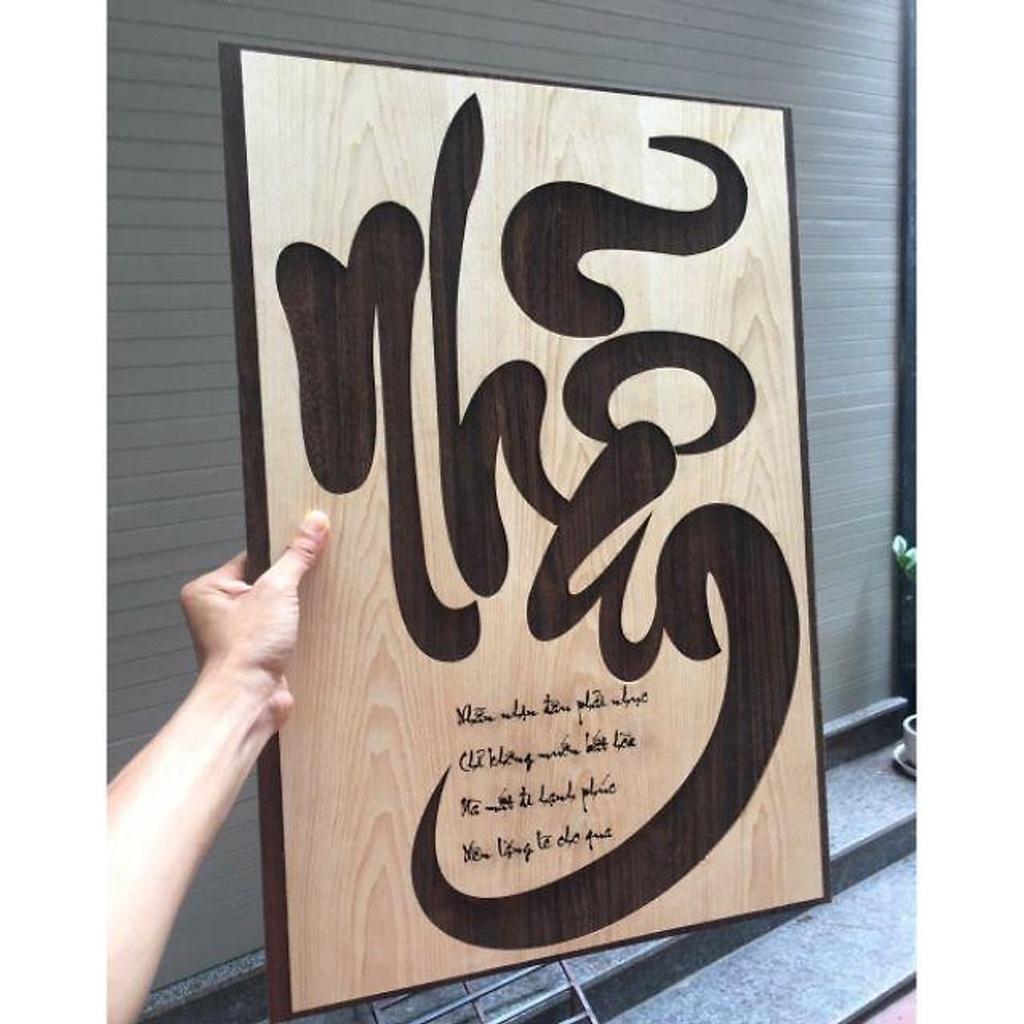 Nhẫn
Nhẫn nhịn đâu phải nhục
Chỉ không muốn bất hòa
Mà mất đi hạnh phúc
Nên lặng lẽ cho qua